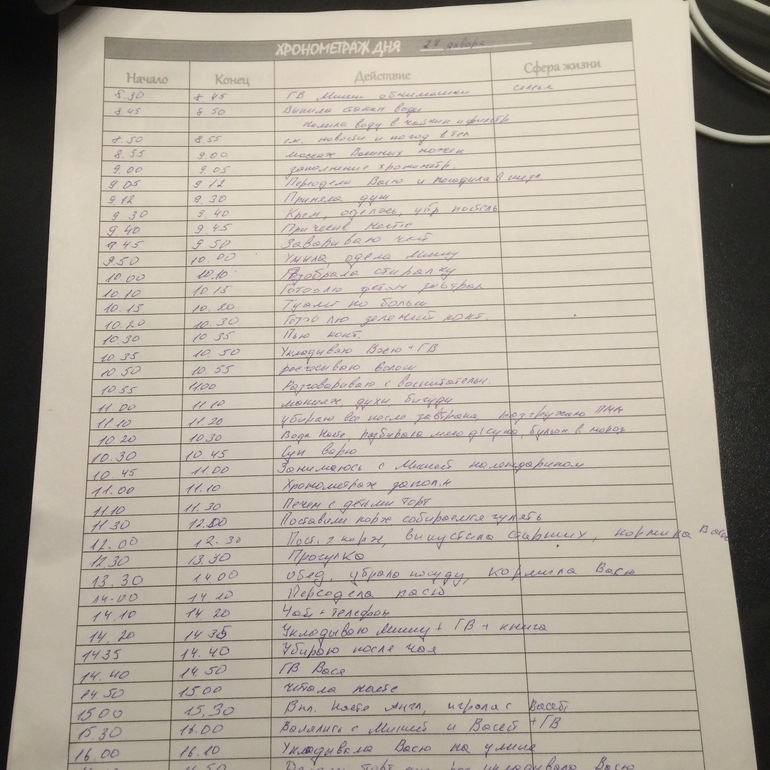 ХРОНОМЕТРАЖ ДНЯ 27 января
Начало Конец Действие Сфера жизни
8.30 8.45 ГВ Миши обнимашки семья
8.45 8.50 Выпила стакан воды
налила воду в чайник и фильтр
8.50 8.55 см. новости и погод в тел
8.55 9.00 массаж Васиных ножек
9.00 9.05 заполнение хронометр
9.05 9.12 Переодела Васю и
9.12 9.30 Приняла душ
9 30 9.40 Крем, оделась, убр постель
9 40 9 45 Причесыв Настю
9.45 9 50 Завариваю чай
9.50 10.00 Умыла одела Мишу
10.00 10.10 Разобрала стиралку
10.10 10 15 Готовлю детям завтрак
10.15 10.20 Туалет по больш
10.20 10.30 Готовлю зеленый кокт.
10.30 10 35 Пью кокт.
10.35 10.50 Укладываю Васю + ГВ
10.50 10.55 расчесываю волосы
10.55 1100 Разговариваю с воспитательн.
11.00 11.10 макияж духи бигуди
11.10 11.20 убираю все после завтрака разгружаю ПММ
10.20 10.30 Вода Насте, разбирала бульон в мороз
10.30 10 45 Суп варю
10.45 11.00 Занимаюсь с Мишей календариком
11.00 11.10 Хронометраж заполн
11.10 11.30 Печем с детьми торт
11.30 12.00 Поставили корж собираемся гулять
12.00 12.30 Пост. 2 корж, выпустила старших, кормила Васю
12.30 13.30 Прогулка
13.30 14.00 обед, убрала посуду, кормила Васю
14.00 14.10 Переодела Васю
14.10 14.20 Чай + телефон
14.20 14 35 Укладываю Мишу + ГВ + книга
1435 14.40 Убираю после чая
14.40 14.50 ГВ Вася
14 50 15 00 читала Насте
15.00 15.30 Вкл. Насте Англ, играла с Васей
15 30 16.00 Валялись с Мишей и Васей + ГВ
16.00 16.10 Укладывала Васю на улице
торт укладывала Васю